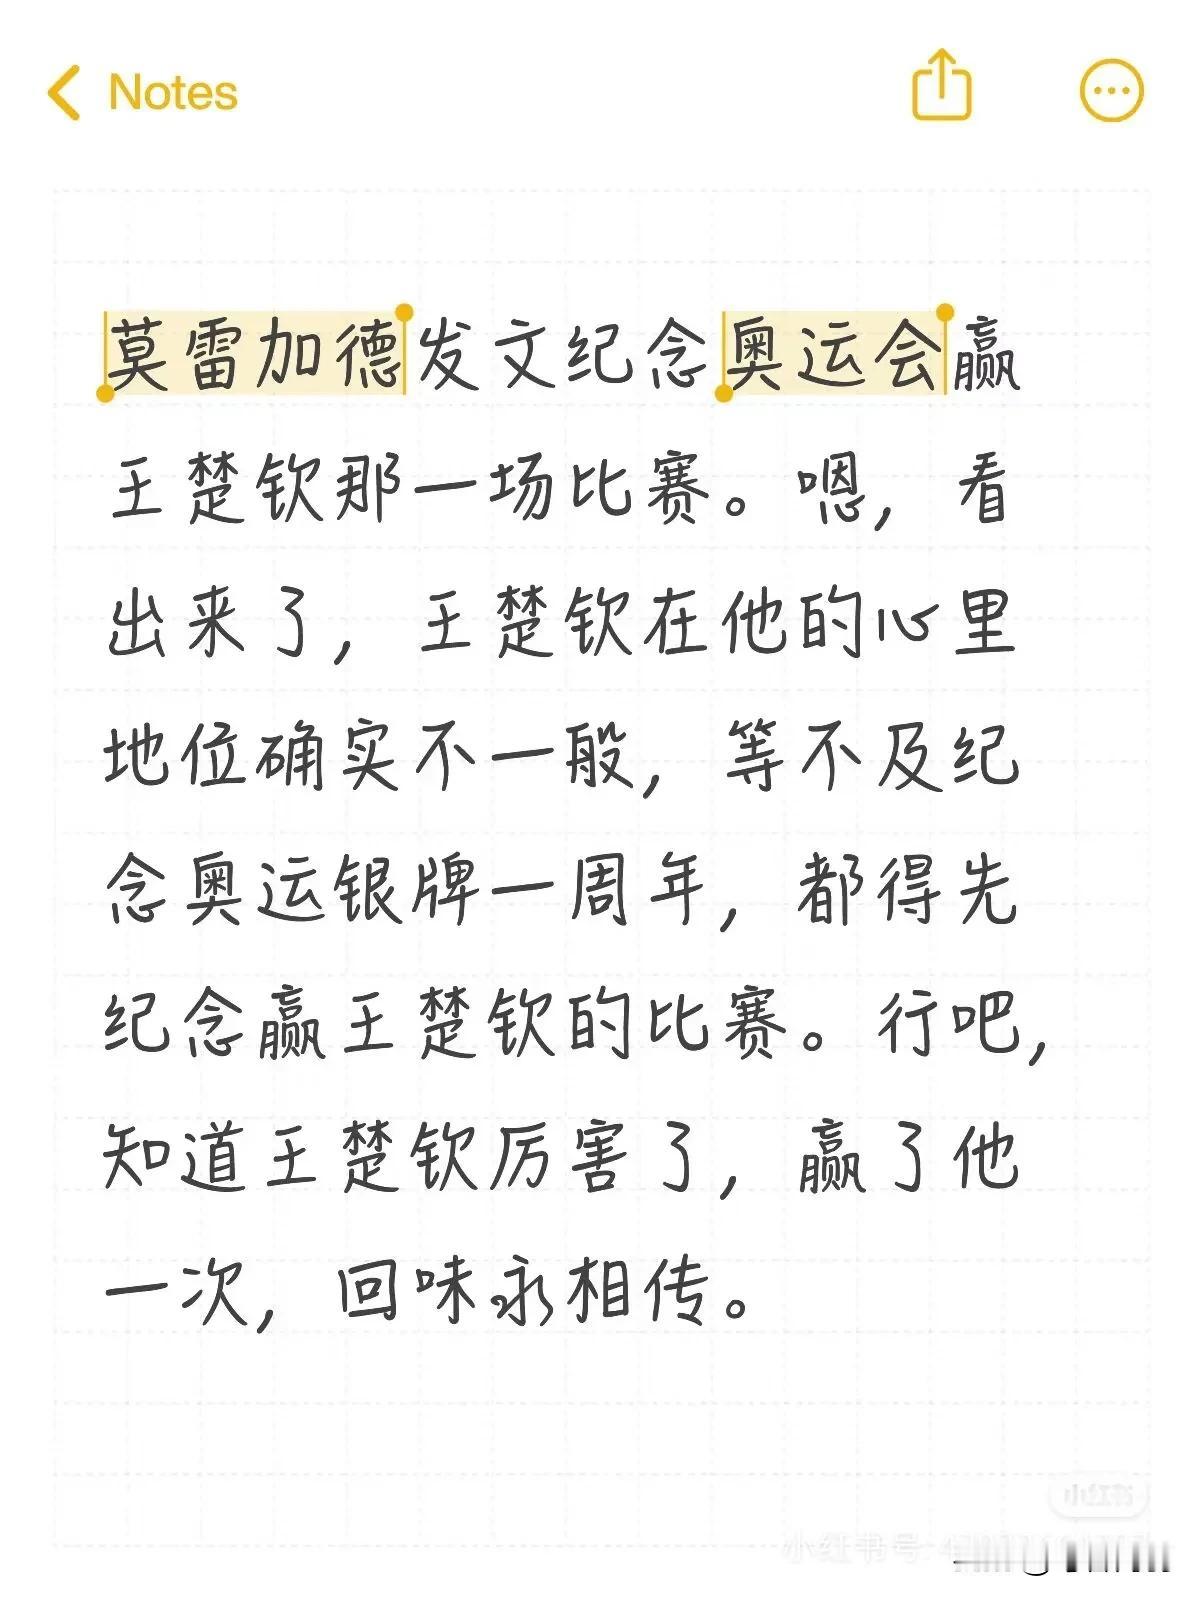 Notes
莫雷加德发文纪念奥运会赢
王楚钦那一场比赛。嗯，看
出来了，王楚钦在他的心里
地位确实不一般，等不及纪
念奥运银牌一周年，都得先
纪念赢王楚钦的比赛。行吧，
知道王楚钦厉害了，赢了他
一次，回味永相传。
小红书
小红书号: